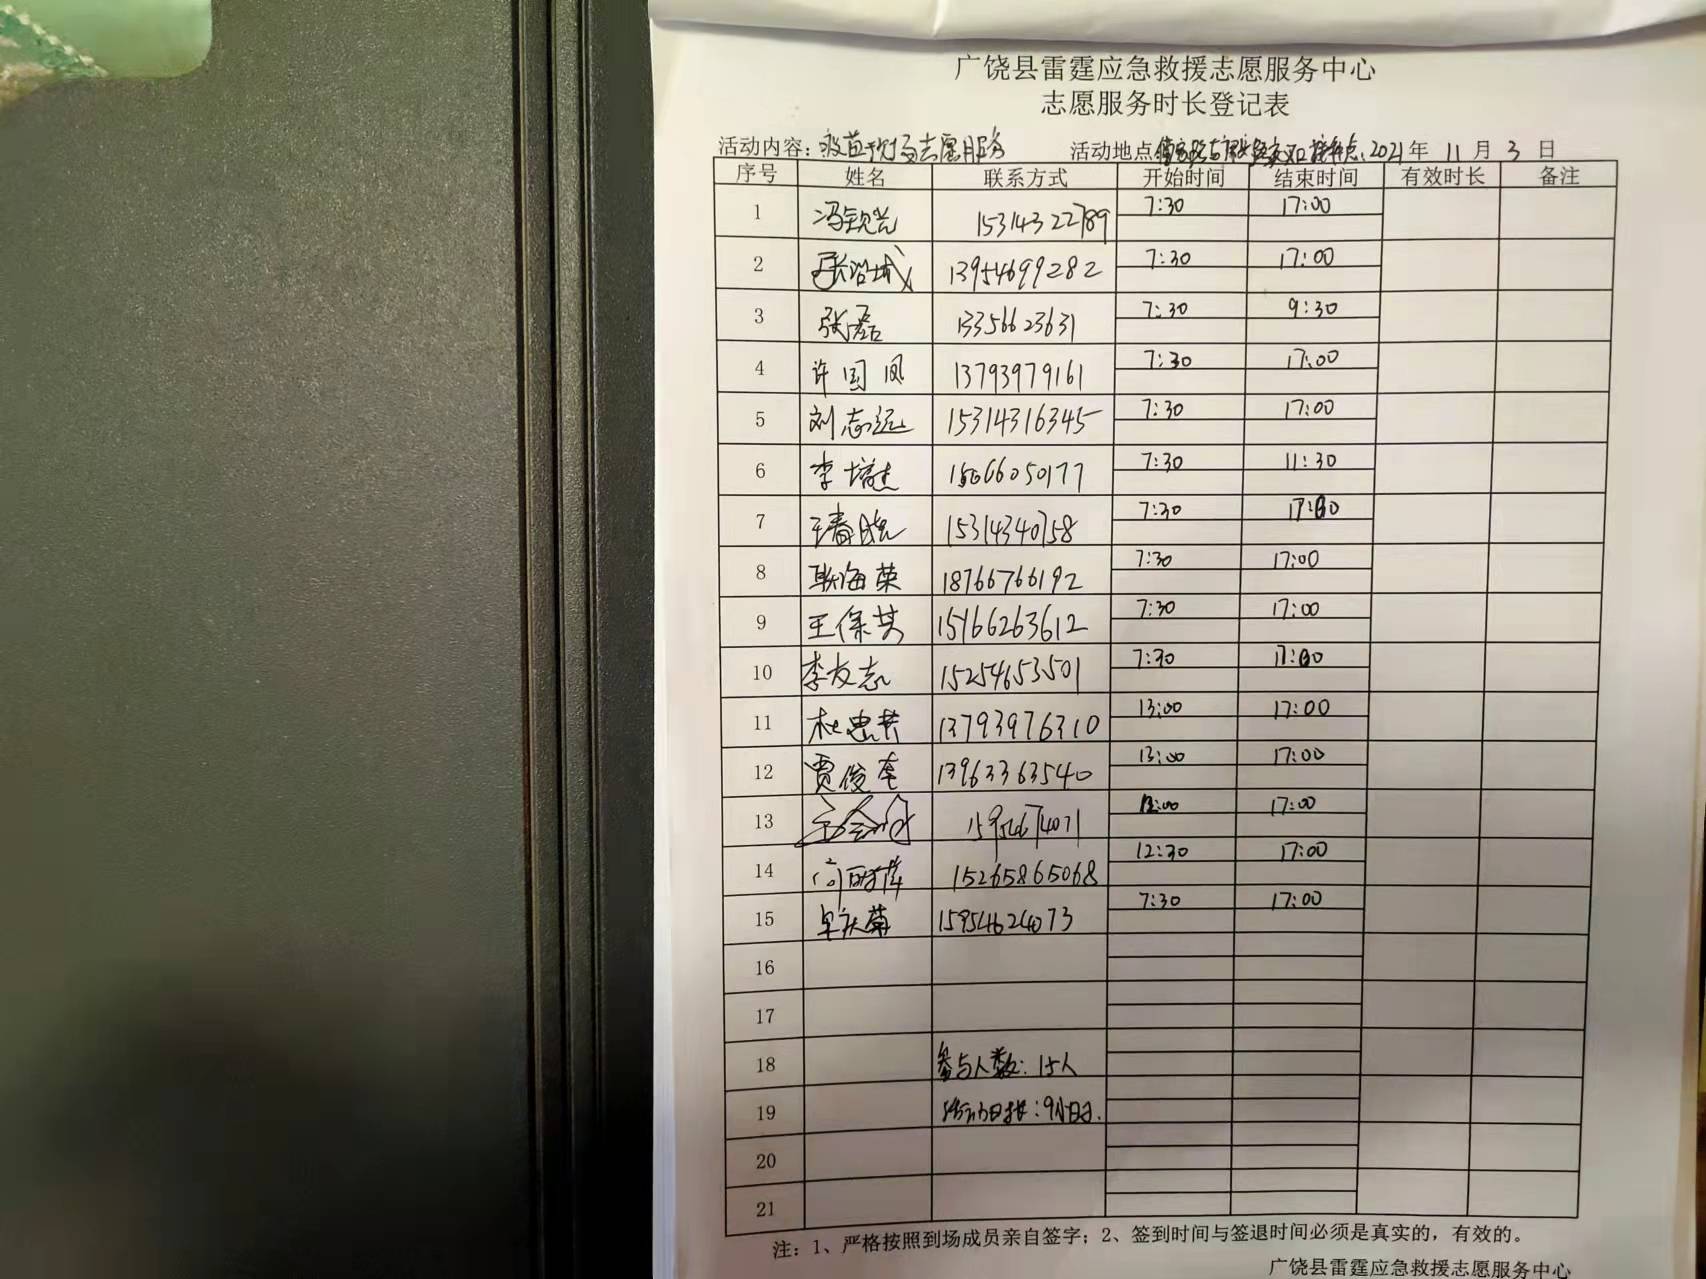 广饶县雷霆应急救援志愿服务中心
志愿服务时长登记表
活动内容：疫苗现场志愿服务 活动地点 接种点、2021年 11月 3日
序号 姓名 联系方式 开始时间 结束时间 有效时长 备注
1 冯 15314322789 7:30 17:00
2 张 城 13954699282 7:30 17:00
3 张磊 13356623631 7:30 9:30
4 许国凤 13793979161 7:30 17:00
5 刘志远 15314316345 7:30 17:00
6 李 7:30 11:30
7 王春晓 15314340758 7:30 17:00
8 耿海荣 18766766192 7:30 17:00
9 王保英 15166263612 7:30 17:00
10 李友志 15254653501 7:30 17:00
11 杜忠英 13793976310 13:00 17:00
12 贾俊奎 13963363540 13:00 17:00
13 15954674071 17:00
14 15265865068 12:30 17:00
15 牟庆菊 15954624073 7:30 17:00
16
17
18 参与人数：15人
19 活动时长：9小时.
20
21
注：1、严格按照到场成员亲自签字；2、签到时间与签退时间必须是真实的，有效的。
广饶县雷霆应急救援志愿服务中心